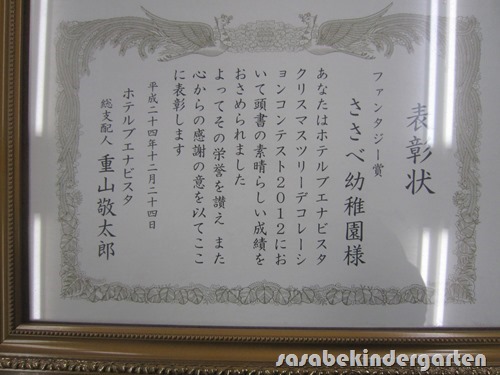 表彰状
ファンタジー賞
ささべ幼稚園様
あなたはホテルブエナビスタ
クリスマスツリーデコレーシ
ョンコンテスト2012にお
いて頭書の素晴らしい成績を
おさめられました
よってその栄誉を讃え また
心からの感謝の意を以てここ
に表彰します
平成二十四年十二月二十四日
ホテルブエナビスタ
総支配人 重山敬太郎
sasabekindergarten